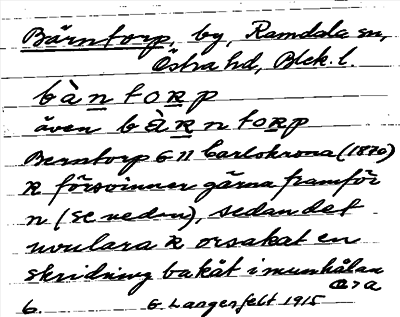 Bärntorp, by, Ramdala sn,
Östra hd, Blek. l.
bàntoRp
även bÀRntoRp
Berntorp G II Carlskrona (1870)
R försvinner gärna framför
n (se nedan), sedan det
uvulara R orsakat en
skridning bakåt i munhålan
a > a
6. E. Langerfelt 1915